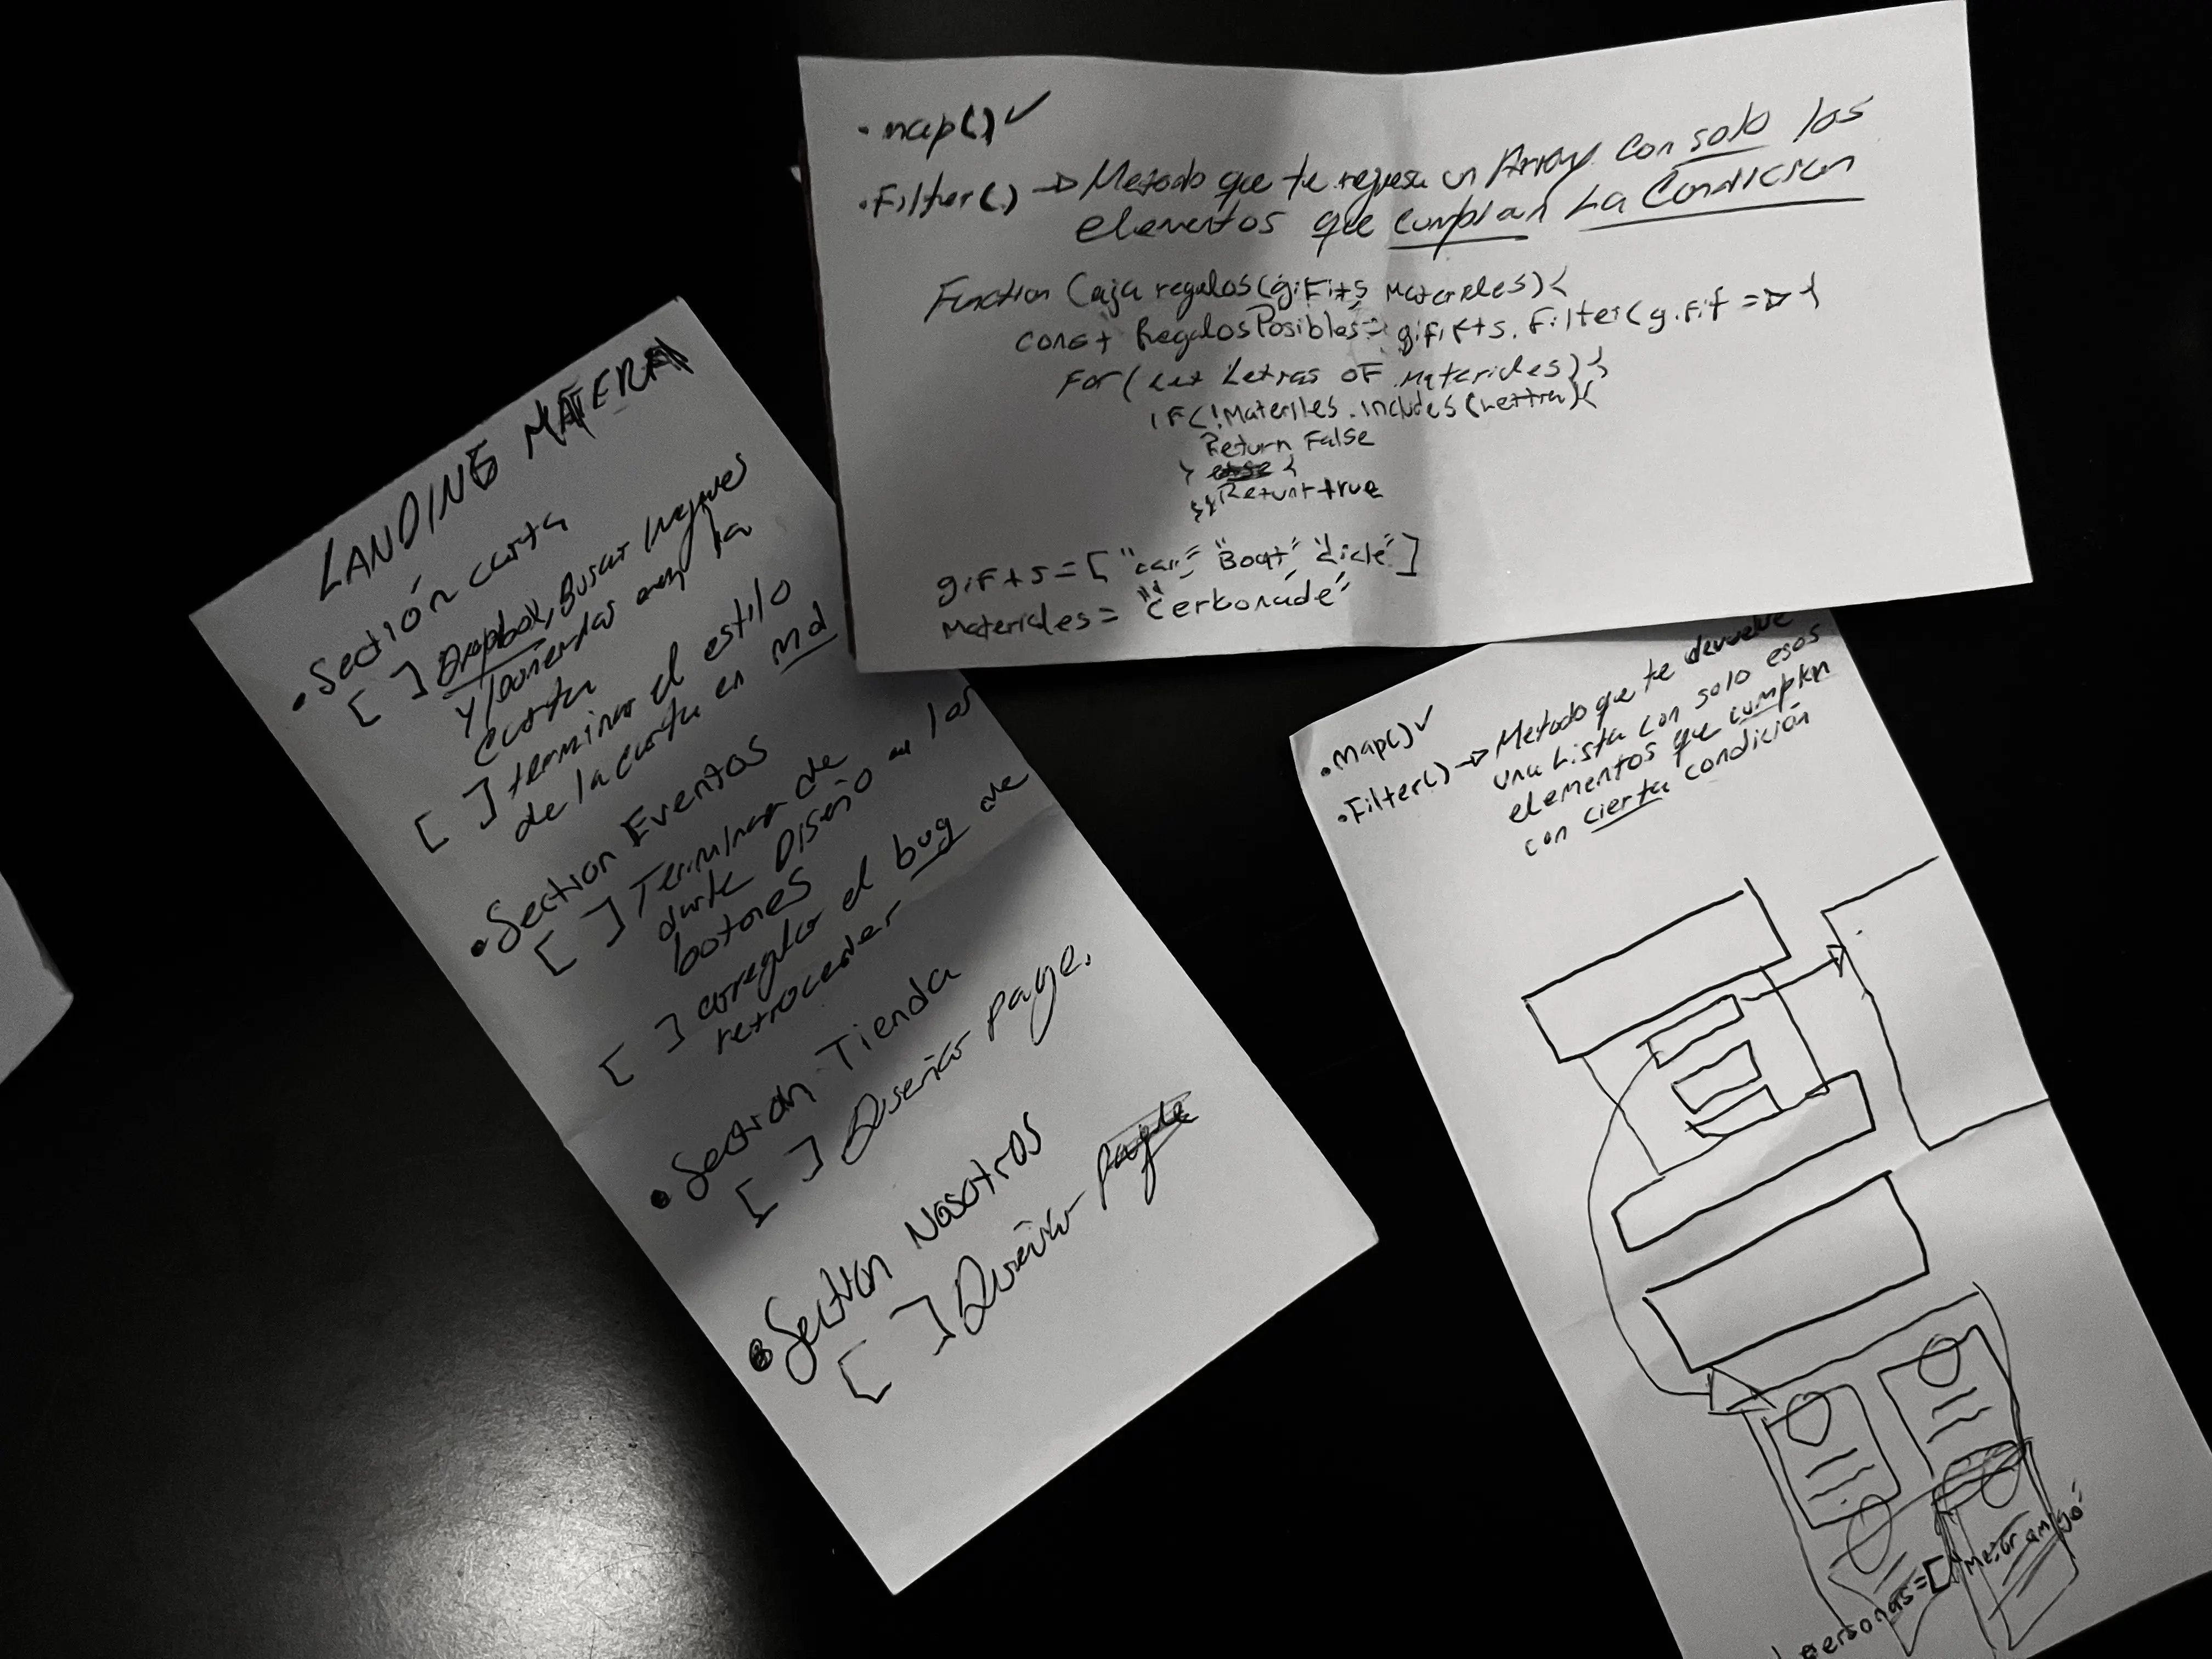 LANDING MATERA
• Sección carta
[ ] Dropbox, Buscar
y ponerlas en la
carta
[ ] terminar el estilo
de la carta en md
• Section Eventos
[ ] Terminar de
darle Diseño a los
botones
[ ] arreglar el bug de
retroceder
• Section Tienda
[ ] Diseñar page.
• Section Nosotros
[ ] Diseñar page
• map() ✓
• Filter() → Metodo que te regresa un Array con solo los
elementos que cumplan La Condicion
Function Caja regalos(gifits, Materieles){
const RegalosPosibles = gififts.Filter(gifif => {
For(let Letras OF Materieles){
IF(!Materiles.includes(Lettra){
Return False
} else {
}} Return true
gifts = ["car" "Boat"
Materieles = "Cerbonade"
• map() ✓
• Filter() → Metodo que te devuelve
una Lista con solo esos
elementos que cumplen
con cierta condición
personas = ["Mejor amigo"